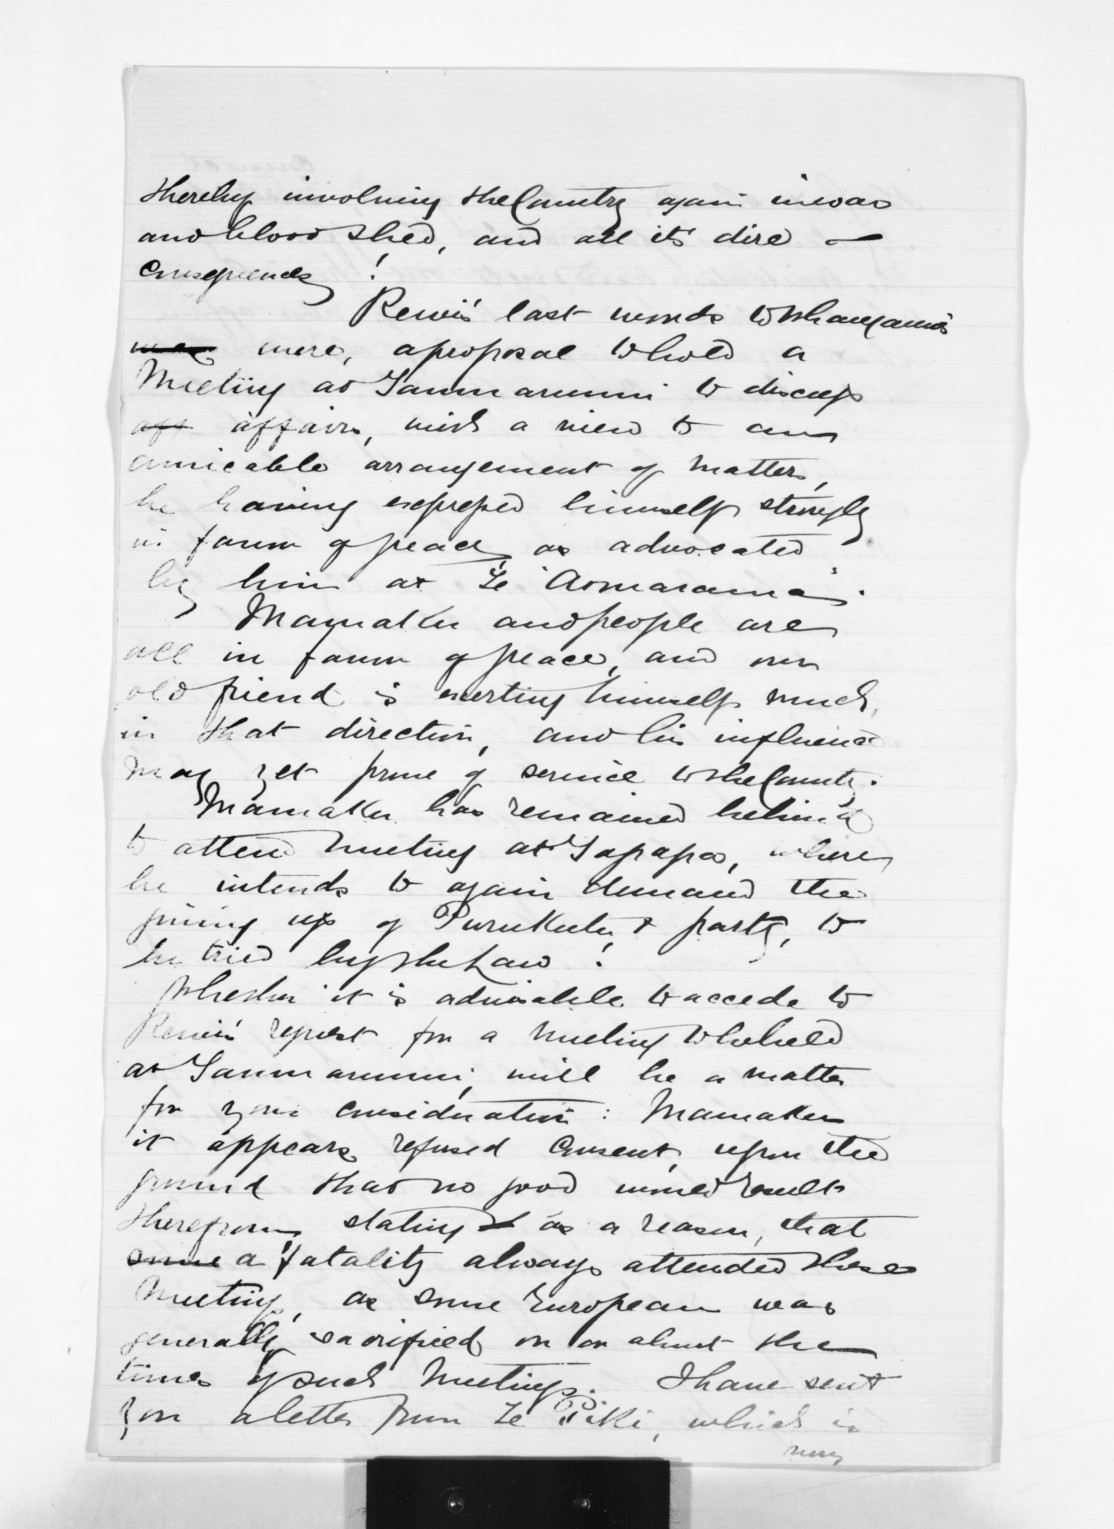 thereby involving the Country again in war
and blood shed, and all its dire
consequences !
Rewi's last words to Whanganui's
were, a proposal to hold a
Meeting at Taumarunui to discuss
aff affairs, with a view to an
amicable arrangement of matters,
he having expressed himself strongly
in favor of peace, as advocated
by him at Te "Aomarama".
Mamaku and people are
all in favor of peace, and our
old friend is exerting himself much,
in that direction, and his influence
may yet prove of service to the Country.
Mamaku has remained behind
to attend meeting at Tapapa, where
he intends to again demand the
giving up of Purukutu & party, to
be tried by the Law !
Whether it is advisable to accede to
Rewi's request for a meeting to be held
at Taumarunui, will be a matter
for your consideration : Mamaku
it appears refused consent, upon the
ground that no good would result
therefrom, stating as a reason, that
some a fatality always attended these
Meetings, as some European was
generally sacrificed on or about the
times of such Meetings. I have sent
you a letter from Te Piki, which is
very